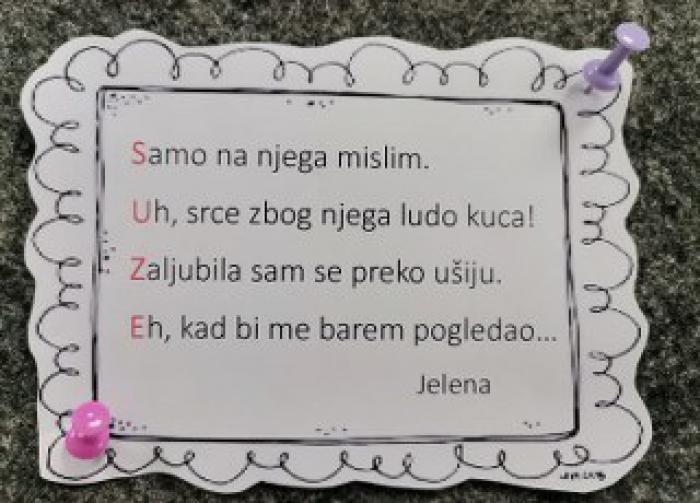 Samo na njega mislim.
Uh, srce zbog njega ludo kuca!
Zaljubila sam se preko ušiju.
Eh, kad bi me barem pogledao...
Jelena